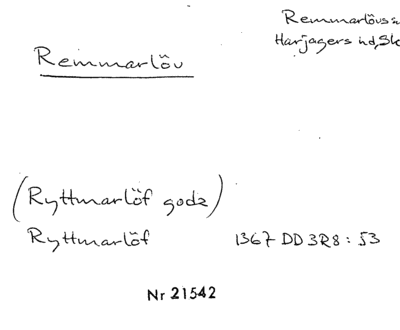 Remmarlövs
Harjagers hd, Sk
Remmarlöv
(Ryttmarlöf godz)
Ryttmarlöf 1367 DD 3R8: 53
Nr 21542